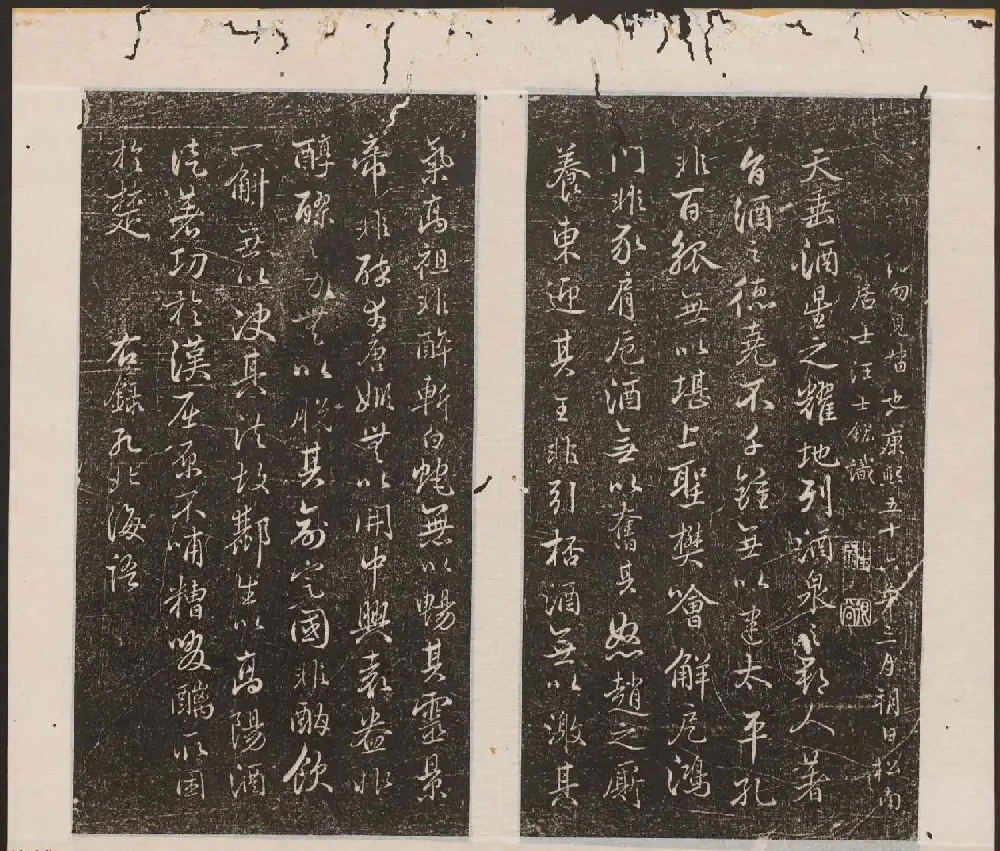 也康熙五十六年三月朔日松南
居士汪士鋐識
天垂酒星之耀地列酒泉之郡人著
旨酒之德堯不千鍾無以建太平孔
非百觚無以堪上聖樊噲解厄鴻
門非彘肩卮酒無以奮其怒趙之廝
養東迎其王非引桮酒無以激其
氣高祖非醉斬白蛇無以暢其靈景
帝非醉幸唐姬無以開中興袁盎非
醇醪之力無以脫其命定國非酣飲
一斛無以決其法故酈生以高陽酒
徒著功於漢屈原不哺糟啜醨取困
於楚
右錄孔北海語